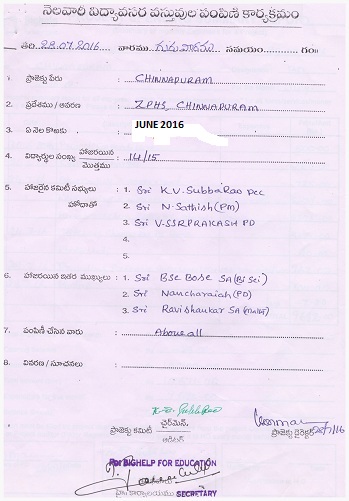 నెలవారీ విద్యావసర వస్తువుల పంపిణి కార్యక్రమం
తేది. 28.07.2016 వారము గురువారము సమయం గం॥
1. ప్రాజెక్టు పేరు : CHINNAPURAM
2. ప్రదేశము / ఆవరణ : ZPHS, CHINNAPURAM
3. ఏ నెల కొఱకు : JUNE 2016
4. విద్యార్థుల సంఖ్య హాజరైన మొత్తము : 14/15
5. హాజరైన కమిటీ సభ్యులు హోదాతో : 1. Sri K.V. SubbaRao PCC
2. Sri N. Sathish (PM)
3. Sri V-SSRPRAKASH PD
4.
5.
6. హాజరయిన ఇతర ముఖ్యులు : 1. Sri BSC Bose SA (Bi Sci)
2. Sri Nancharaiah (PD)
3. Sri Ravishankar SA
7. పంపిణీ చేసిన వారు : Above all
8. వివరణ / సూచనలు :
ప్రాజెక్టు కమిటీ చైర్మన్. ప్రాజెక్టు డైరెక్టర్
ఆడిటర్
For BIGHELP FOR EDUCATION
SECRETARY